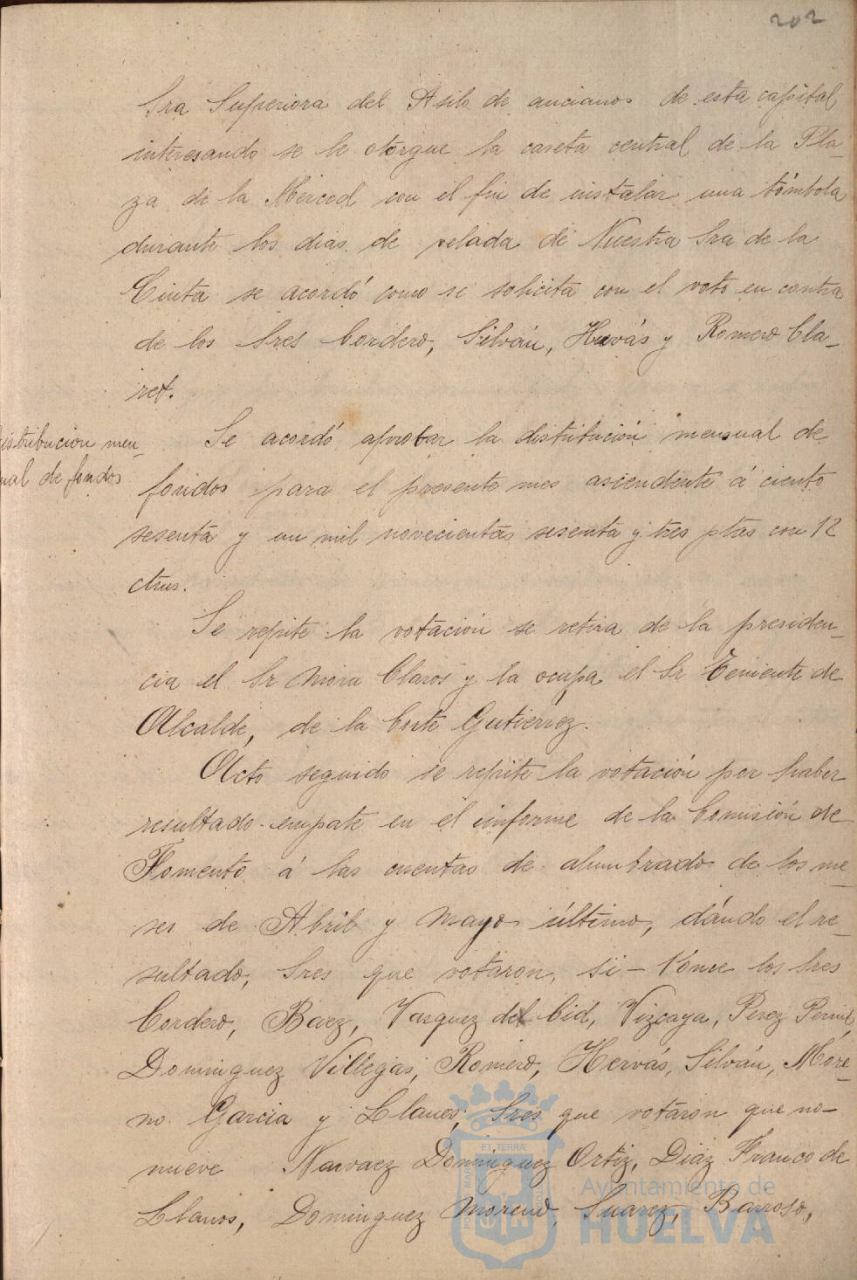 202
Sra Superiora del Asilo de ancianos de esta capital
interesando se le otorgue la caseta central de la Pla-
za de la Merced con el fin de instalar una tómbola
durante los dias de velada de Nuestra Sra de la
Cinta se acordó como se solicita con el voto en contra
de los Sres Cordero, Silván, Hervás y Romero Cla-
ret.
distribucion men-
ual de fondos
Se acordó aprobar la distribución mensual de
fondos para el presente mes ascendente á ciento
sesenta y un mil novecientas sesenta y tres ptas con 12
ctms.
Se repite la votación se retira de la presiden-
cia el Sr Mora Claros y la ocupa el Sr Teniente de
Alcalde, de la Corte Gutierrez.
Acto seguido se repite la votación por haber
resultado empate en el informe de la Comisión de
Fomento á las cuentas de alumbrado de los me-
ses de Abril y Mayo último, dándo el re-
sultado, Sres que votaron, si - Once los Sres
Cordero, Baez, Vazquez del Cid, Vizcaya, Perez
Dominguez Villegas, Romero, Hervás, Silván, More-
no Garcia y Llanes, Sres que votaron que no-
nueve Narvaez Dominguez Ortiz, Diaz Franco de
Llanos, Dominguez Moreno, Suarez, Barroso,
ET TERRA
Ayuntamiento de
HUELVA